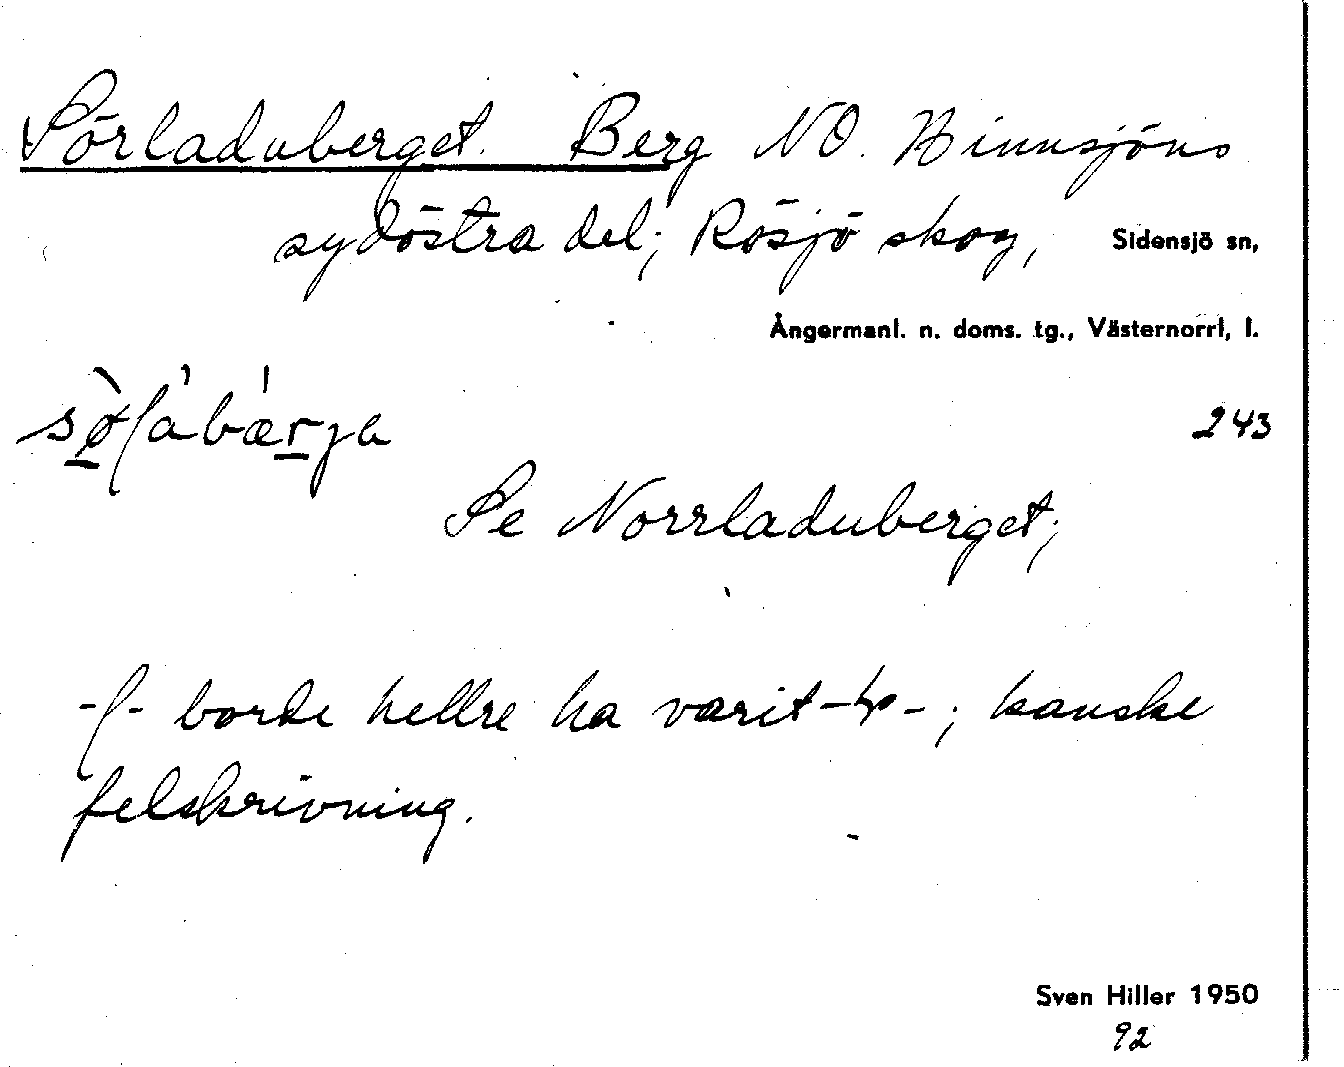 Sörladuberget. Berg NO. Binnsjöns
sydöstra del; Rösjö skog, Sidensjö sn,
Ångermanl. n. doms. tg., Västernorrl, l.
243
Se Norrladuberget;
-ʃ- borde hellre ha varit - - ; kanske
felskrivning.
Sven Hiller 1950
92